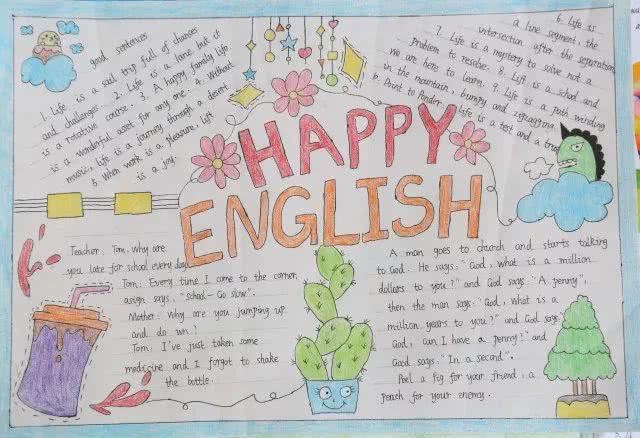 good sentences
1. Life is a sad trip full of chances
and challenges. 2. Life is a lane but it
is a rotative course. 3. A happy family life
is a wonderful asset for any one. 4. Without
music, life is a journey through a desert
5. When work is a pleasure, life
is a joy.
6. Life is
a line segment, the
intersection after the separation
7. Life is a mystery to solve not a
problem to resolve. 8. Life is a school and
we are here to learn. 9. Life is a path winding
in the mountain, bumpy and zigzagging.
10. Point to Ponder life is a test and a trust
HAPPY
ENGLISH
Teacher: Tom, why are
you late for school every day
Tom: Every time I come to the corner,
a sign says, "School-Go slow".
Mother: Why are you jumping up
and do wn?
Tom: I've just taken some
medicine and I forgot to shake
the bottle.
A man goes to church and starts talking
to God. He says: "God, what is a million
dollars to you?" and God says: "A penny",
then the man says: "God, what is a
million years to you?" and God says:
God, can I have a penny?" and
God says: "In a second".
Peel a fig for your friend, a
peach for your enemy.